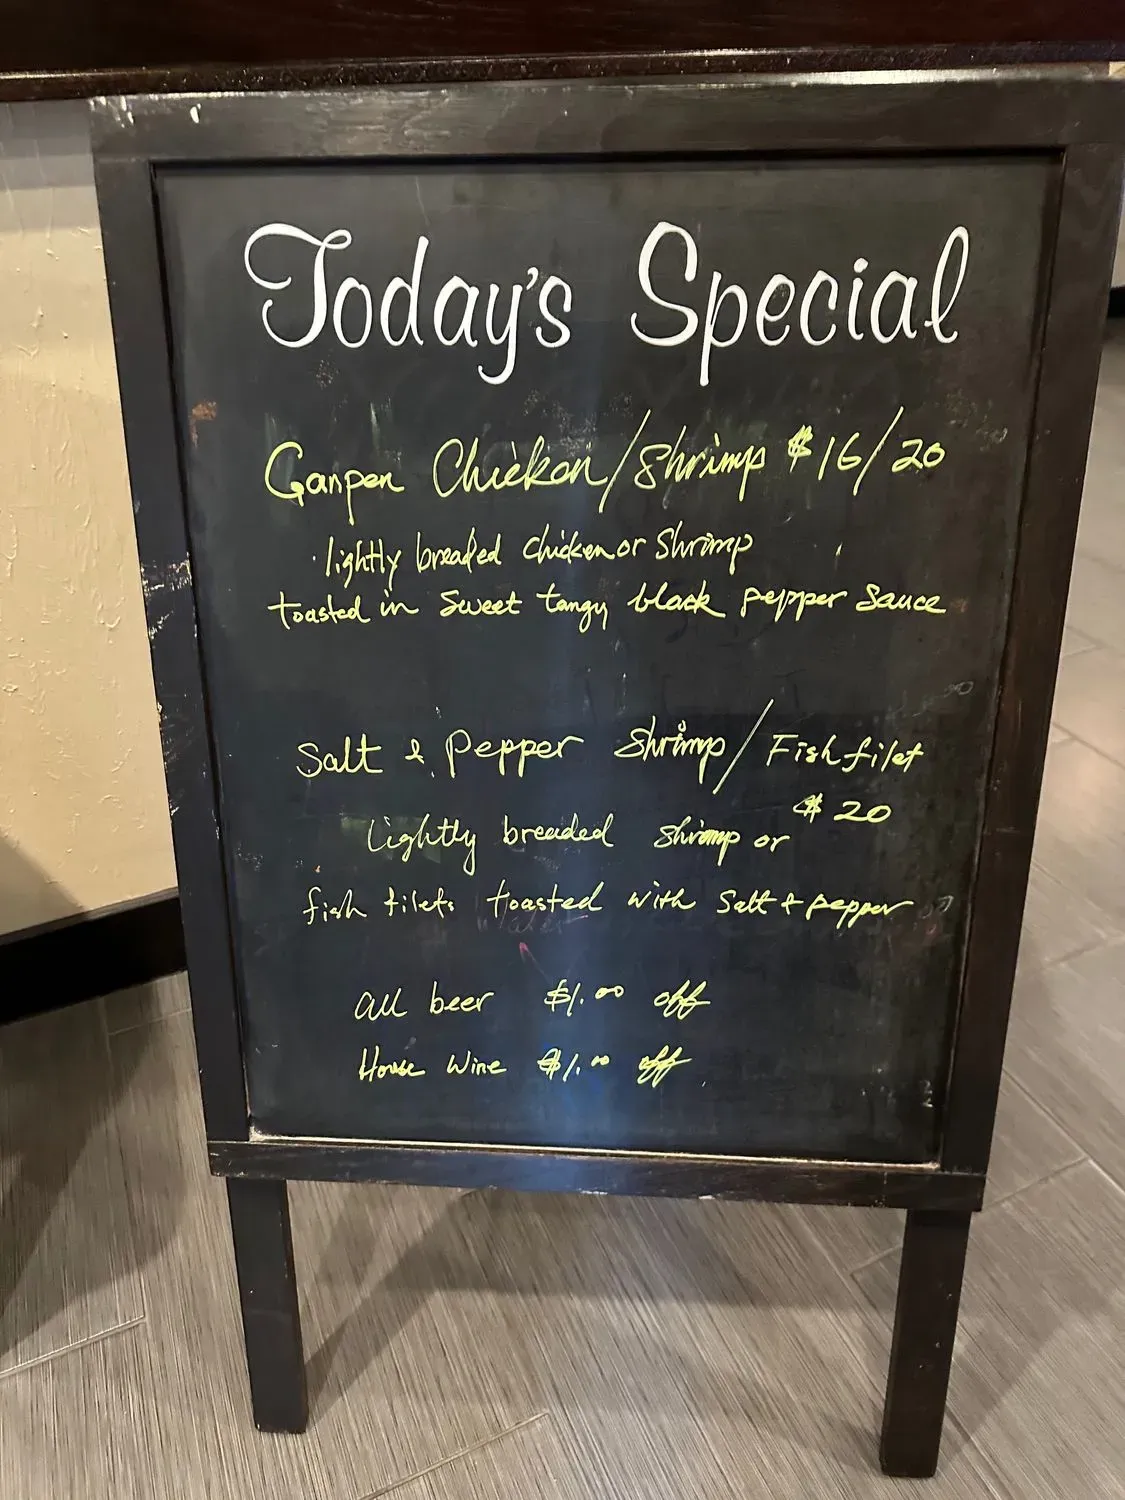 Today's Special
Ganpen Chicken/Shrimp $16/20
lightly breaded chicken or Shrimp
toasted in Sweet tangy black pepper Sauce
Salt & Pepper Shrimp/Fish filet
$20
lightly breaded shrimp or
fish filets toasted with Salt & pepper
all beer $1.00 off
House Wine $1.00 off